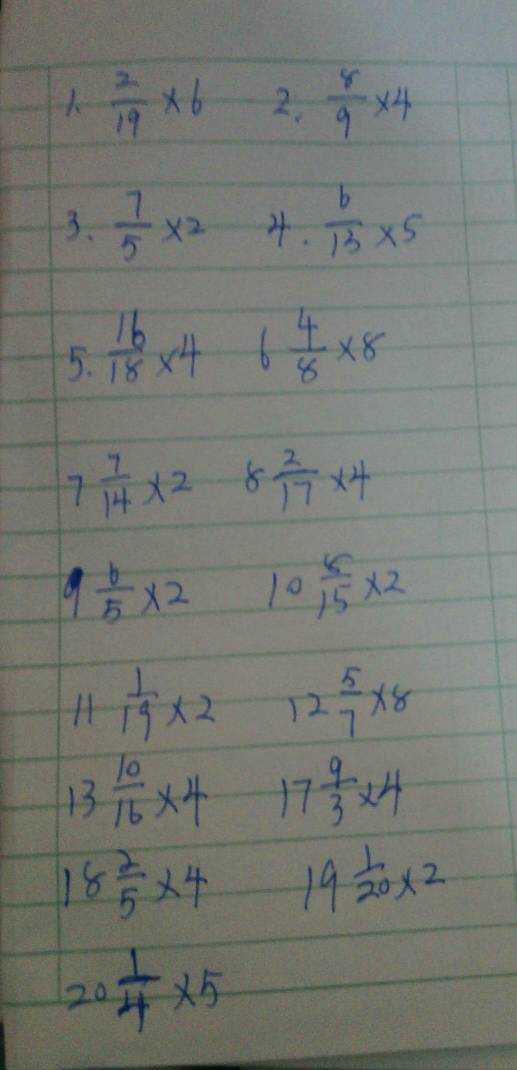 1. 2/19 ×6 2. 8/9 ×4
3. 7/5 ×2 4. 6/13 ×5
5. 16/18 ×4 6 4/8 ×8
7 7/14 ×2 8 2/17 ×4
9 6/5 ×2 10 8/15 ×2
11 1/19 ×2 12 5/7 ×8
13 10/16 ×4 17 9/3 ×4
18 2/5 ×4 19 1/20 ×2
20 1/4 ×5